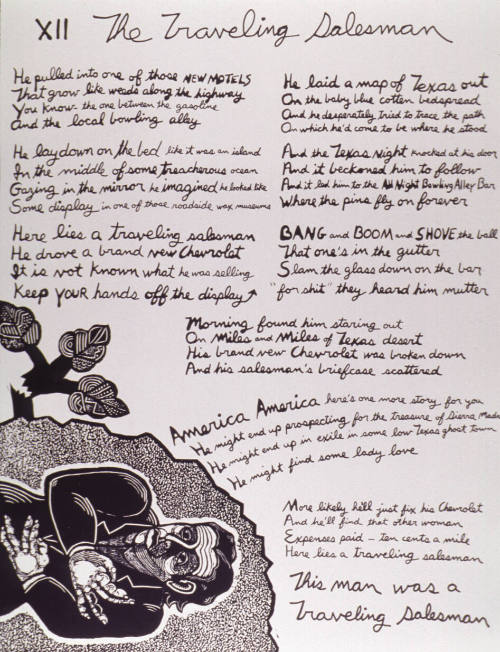 XII The Traveling Salesman
He pulled into one of those NEW MOTELS
That grow like weeds along the highway
You know - the one between the gasoline
And the local bowling alley
He lay down on the bed like it was an island
In the middle of some treacherous ocean
Gazing in the mirror he imagined he looked like
Some display in one of those roadside wax museums
Here lies a traveling salesman
He drove a brand new Chevrolet
It is not known what he was selling
Keep YOUR hands off the display
He laid a map of Texas out
On the baby blue cotten bedspread
And he desperately tried to trace the path
On which he'd come to be where he stood
And the Texas Night knocked at his door
And it beckoned him to follow
And it led him to the All Night Bowling Alley Bar
Where the pins fly on forever
BANG and BOOM and SHOVE the ball
That one's in the gutter
Slam the glass down on the bar
"for shit" they heard him mutter
Morning found him staring out
On Miles and Miles of Texas desert
His brand new Chevrolet was broken down
And his salesman's briefcase scattered
America America here's one more story for you
He might end up prospecting for the treasure of Sierra Madre
He might end up in exile in some low Texas ghost town
He might find some lady love
More likely he'll just fix his Chevrolet
And he'll find that other woman
Expenses paid - ten cents a mile
Here lies a traveling salesman
This man was a
Traveling Salesman